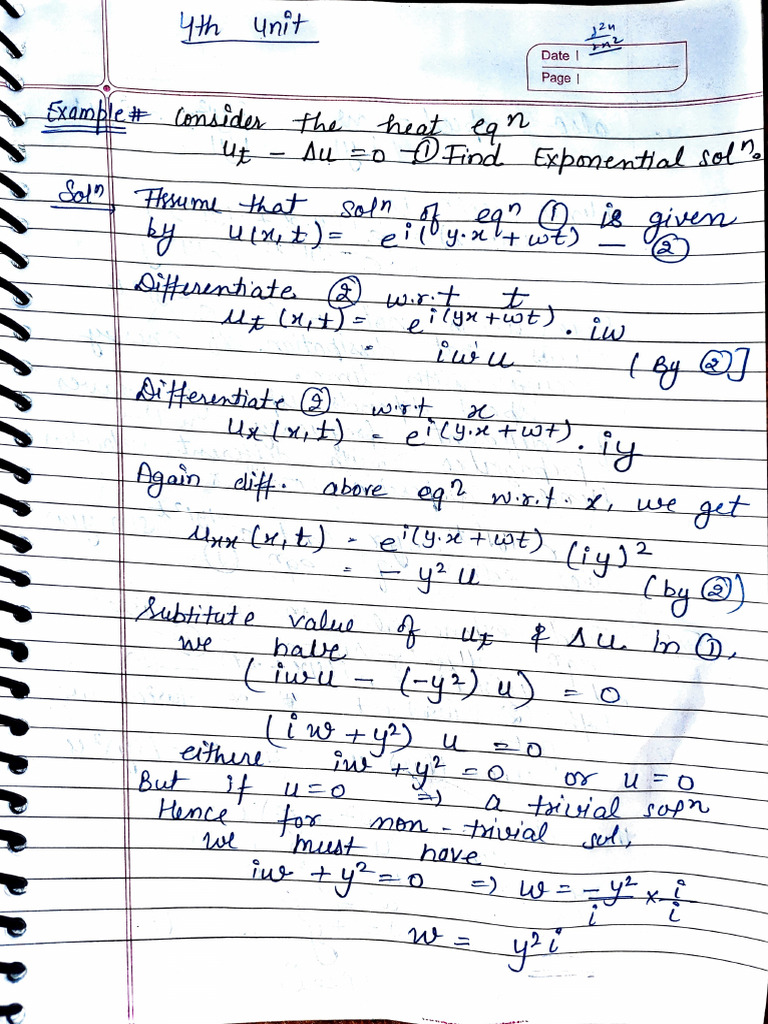 4th unit
∂²u
∂x²
Date |
Page |
Example# Consider the heat eqⁿ
u_t - Δu = 0 -① Find Exponential solⁿ.
Solⁿ Assume that solⁿ of eqⁿ ① is given
by u(x,t) = e^i(y.x + wt) — ②
Differentiate ② w.r.t t
u_t (x,t) = e^i(yx + wt) . iw
= iwu (By ②]
Differentiate ② w.r.t x
u_x (x,t) = e^i(y.x + wt) . iy
Again diff. above eqⁿ w.r.t. x, we get
u_xx (x,t) = e^i(y.x + wt) (iy)²
= - y² u (by ②)
Subtitute value of u_t & Δu in ①,
we have
(iwu - (-y²) u) = 0
(iw + y²) u = 0
eithere iw + y² = 0 or u = 0
But if u = 0 => a trivial solⁿ
Hence for non-trivial sol,
we must have
iw + y² = 0 => w = -y²/i × i/i
w = y²i